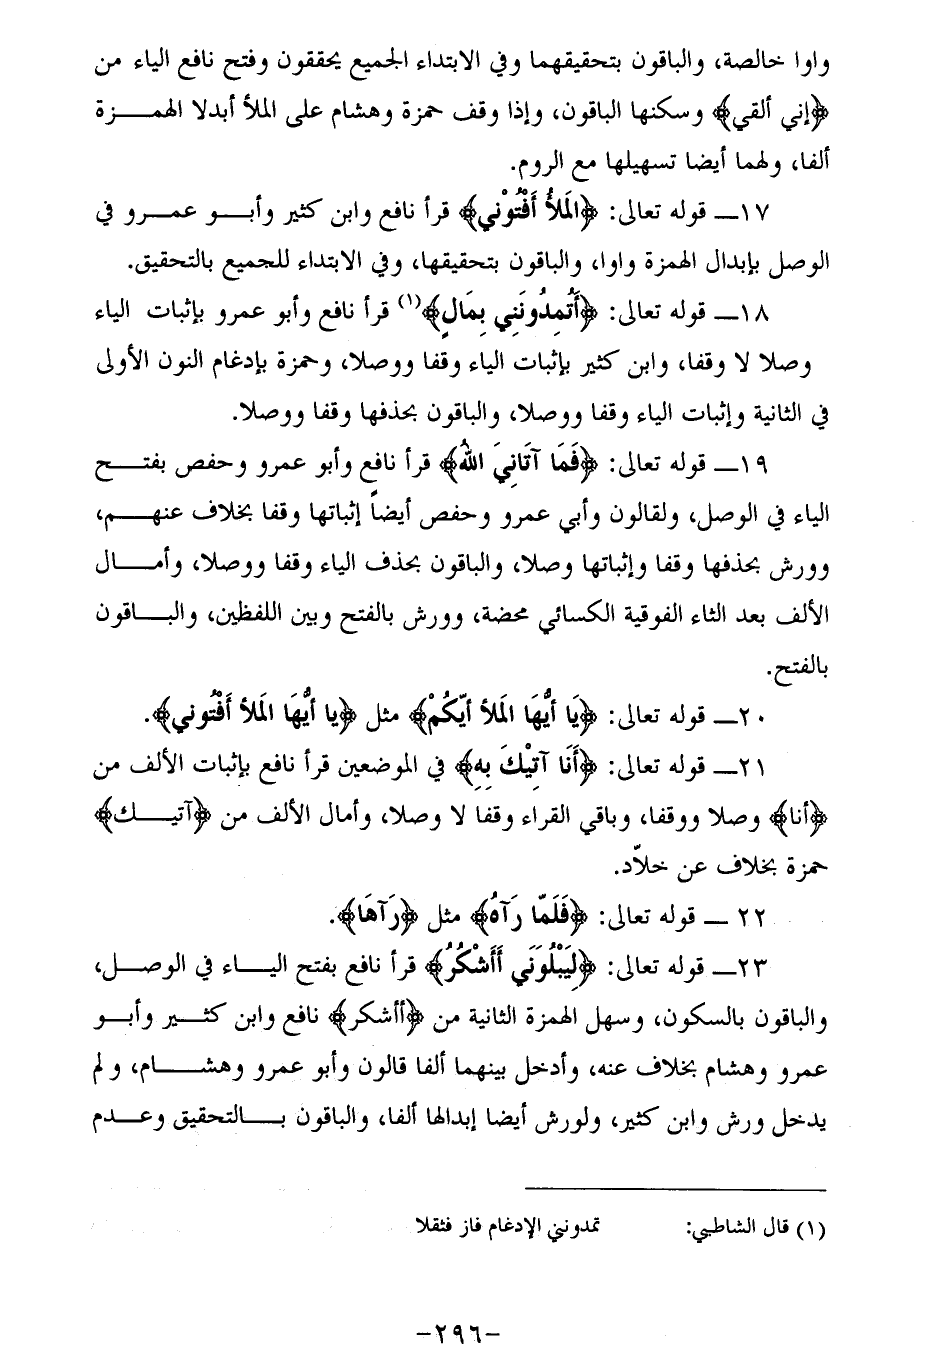 واوا خالصة، والباقون بتحقيقهما وفي الابتداء الجميع يحققون وفتح نافع الياء من
﴿إني ألقي﴾ وسكنها الباقون، وإذا وقف حمزة وهشام على الملأ أبدلا الهمزة
ألفا، ولهما أيضا تسهيلها مع الروم.
١٧ــ قوله تعالى: ﴿الَملأُ أَفْتُوْني﴾ قرأ نافع وابن كثير وأبو عمرو في
الوصل بإبدال الهمزة واوا، والباقون بتحقيقها، وفي الابتداء للجميع بالتحقيق.
١٨ــ قوله تعالى: ﴿أَتُمِدُونَنِي بِمَالٍ﴾(١) قرأ نافع وأبو عمرو بإثبات الياء
وصلا لا وقفا، وابن كثير بإثبات الياء وقفا ووصلا، وحمزة بإدغام النون الأولى
في الثانية وإثبات الياء وقفا ووصلا، والباقون بحذفها وقفا ووصلا.
١٩ــ قوله تعالى: ﴿فَمَا آتَانِيَ اللهُ﴾ قرأ نافع وأبو عمرو وحفص بفتح
الياء في الوصل، ولقالون وأبي عمرو وحفص أيضاً إثباتها وقفا بخلاف عنهم،
وورش بحذفها وقفا وإثباتها وصلا، والباقون بحذف الياء وقفا ووصلا، وأمال
الألف بعد الثاء الفوقية الكسائي محضة، وورش بالفتح وبين اللفظين، والباقون
بالفتح.
٢٠ــ قوله تعالى: ﴿يَا أَيُّهَا الَملأ أيّكُمْ﴾ مثل ﴿يا أيُّهَا الَملأ أَفْتُوني﴾.
٢١ــ قوله تعالى: ﴿أَنَا آتِيْكَ بِهِ﴾ في الموضعين قرأ نافع بإثبات الألف من
﴿أنا﴾ وصلا ووقفا، وباقي القراء وقفا لا وصلا، وأمال الألف من ﴿آتيك﴾
حمزة بخلاف عن خلاّد.
٢٢ ــ قوله تعالى: ﴿فَلَمّا رَآهُ﴾ مثل ﴿رَآهَا﴾.
٢٣ــ قوله تعالى: ﴿لِيَبْلُوَنَي أَأَشْكُرُ﴾ قرأ نافع بفتح الياء في الوصل،
والباقون بالسكون، وسهل الهمزة الثانية من ﴿أأشكر﴾ نافع وابن كثير وأبو
عمرو وهشام بخلاف عنه، وأدخل بينهما ألفا قالون وأبو عمرو وهشام، ولم
يدخل ورش وابن كثير، ولورش أيضا إبدالها ألفا، والباقون بالتحقيق وعدم
(١) قال الشاطبي: تمدونني الإدغام فاز فثقلا
-٢٩٦-